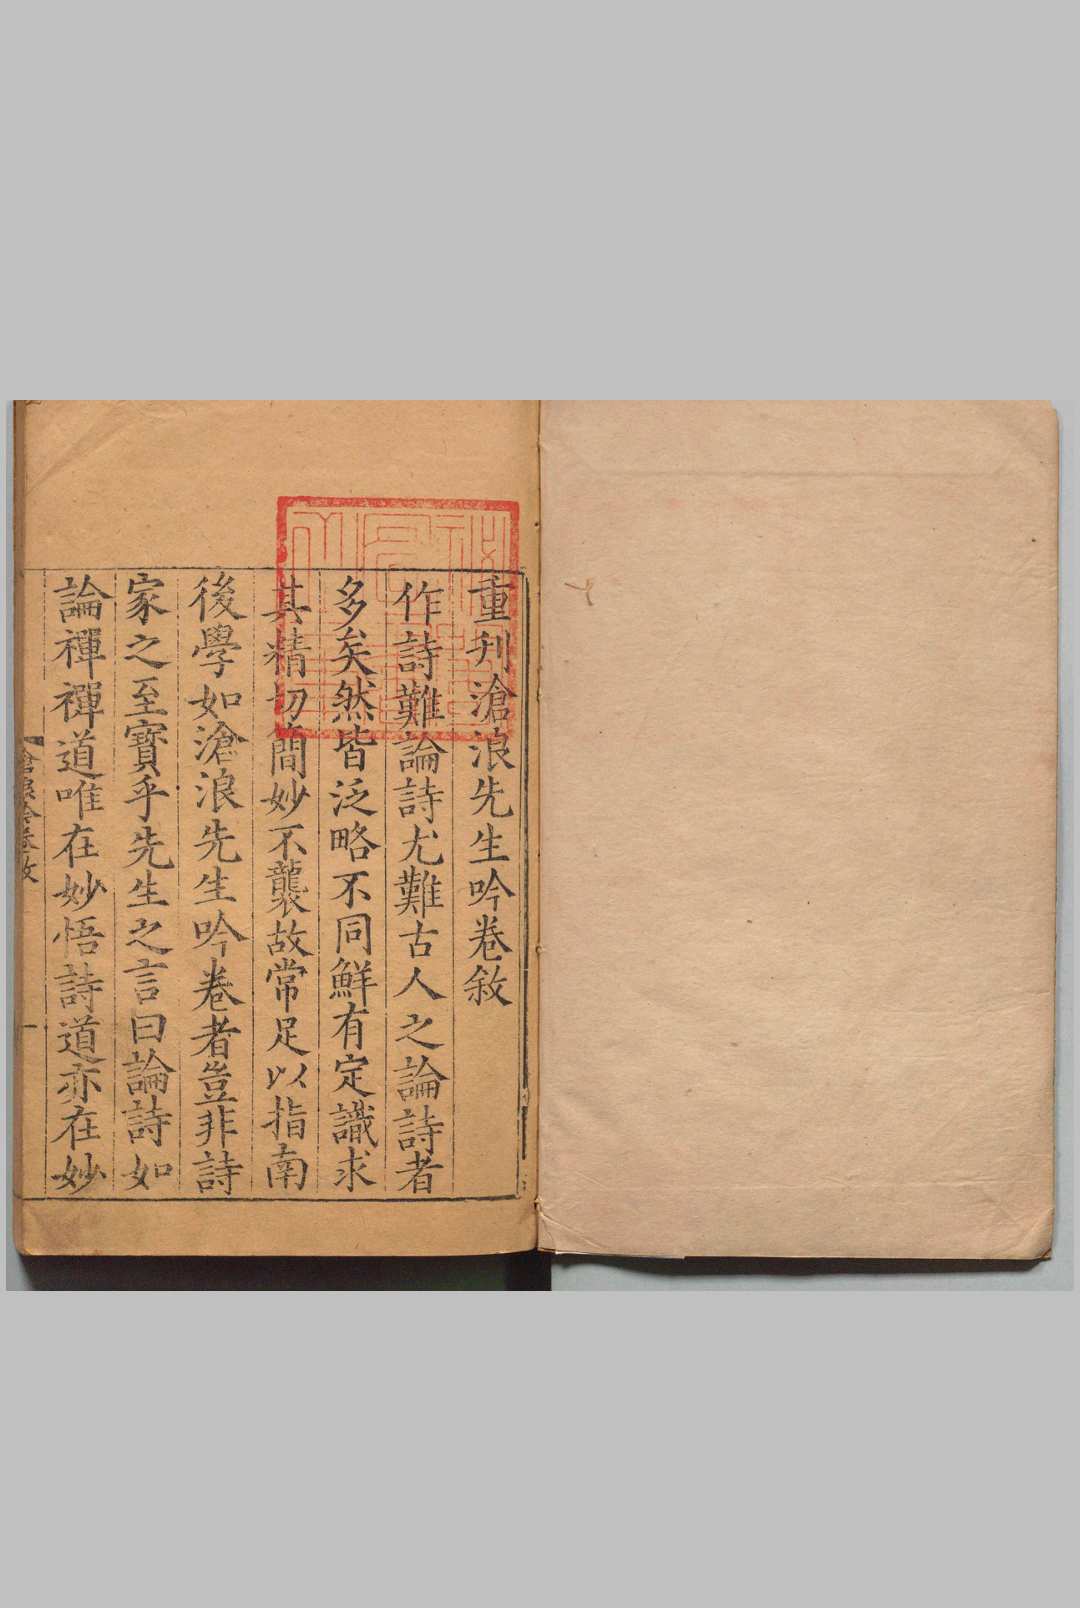 重刋滄浪先生吟卷敘
作詩難論詩尤難古人之論詩者
多矣然皆泛略不同鮮有定識求
其精切簡妙不襲故常足以指南
後學如滄浪先生吟卷者豈非詩
家之至寶乎先生之言曰論詩如
論禪禪道唯在妙悟詩道亦在妙
滄浪吟卷敘
一